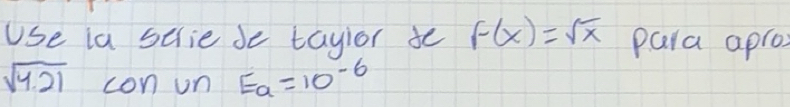 Use la serie de taylor de f(x)=√x para apro
√4.21 con un Ea=10⁻⁶